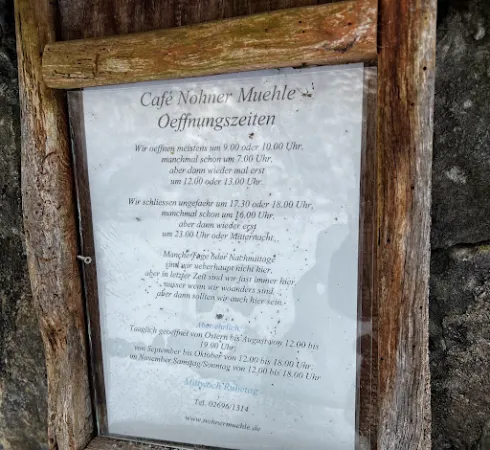 Café Nohner Muehle
Oeffnungszeiten
Wir oeffnen meistens um 9.00 oder 10.00 Uhr,
manchmal schon um 7.00 Uhr,
aber dann wieder mal erst
um 12.00 oder 13.00 Uhr.
Wir schliessen ungefaehr um 17.30 oder 18.00 Uhr,
manchmal schon um 16.00 Uhr,
aber dann wieder erst
um 23.00 Uhr oder Mitternacht.
Manche Tage oder Nachmittage
sind wir ueberhaupt nicht hier,
aber in letzter Zeit sind wir fast immer hier,
ausser wenn wir woanders sind
aber dann sollten wir auch hier sein.
Aber ehrlich:
Taeglich geoeffnet von Ostern bis August von 12.00 bis
19.00 Uhr,
von September bis Oktober von 12.00 bis 18.00 Uhr,
im November Samstag/Sonntag von 12.00 bis 18.00 Uhr
Mittwoch Ruhetag
Tel. 02696/1314
www.nohnermuehle.de